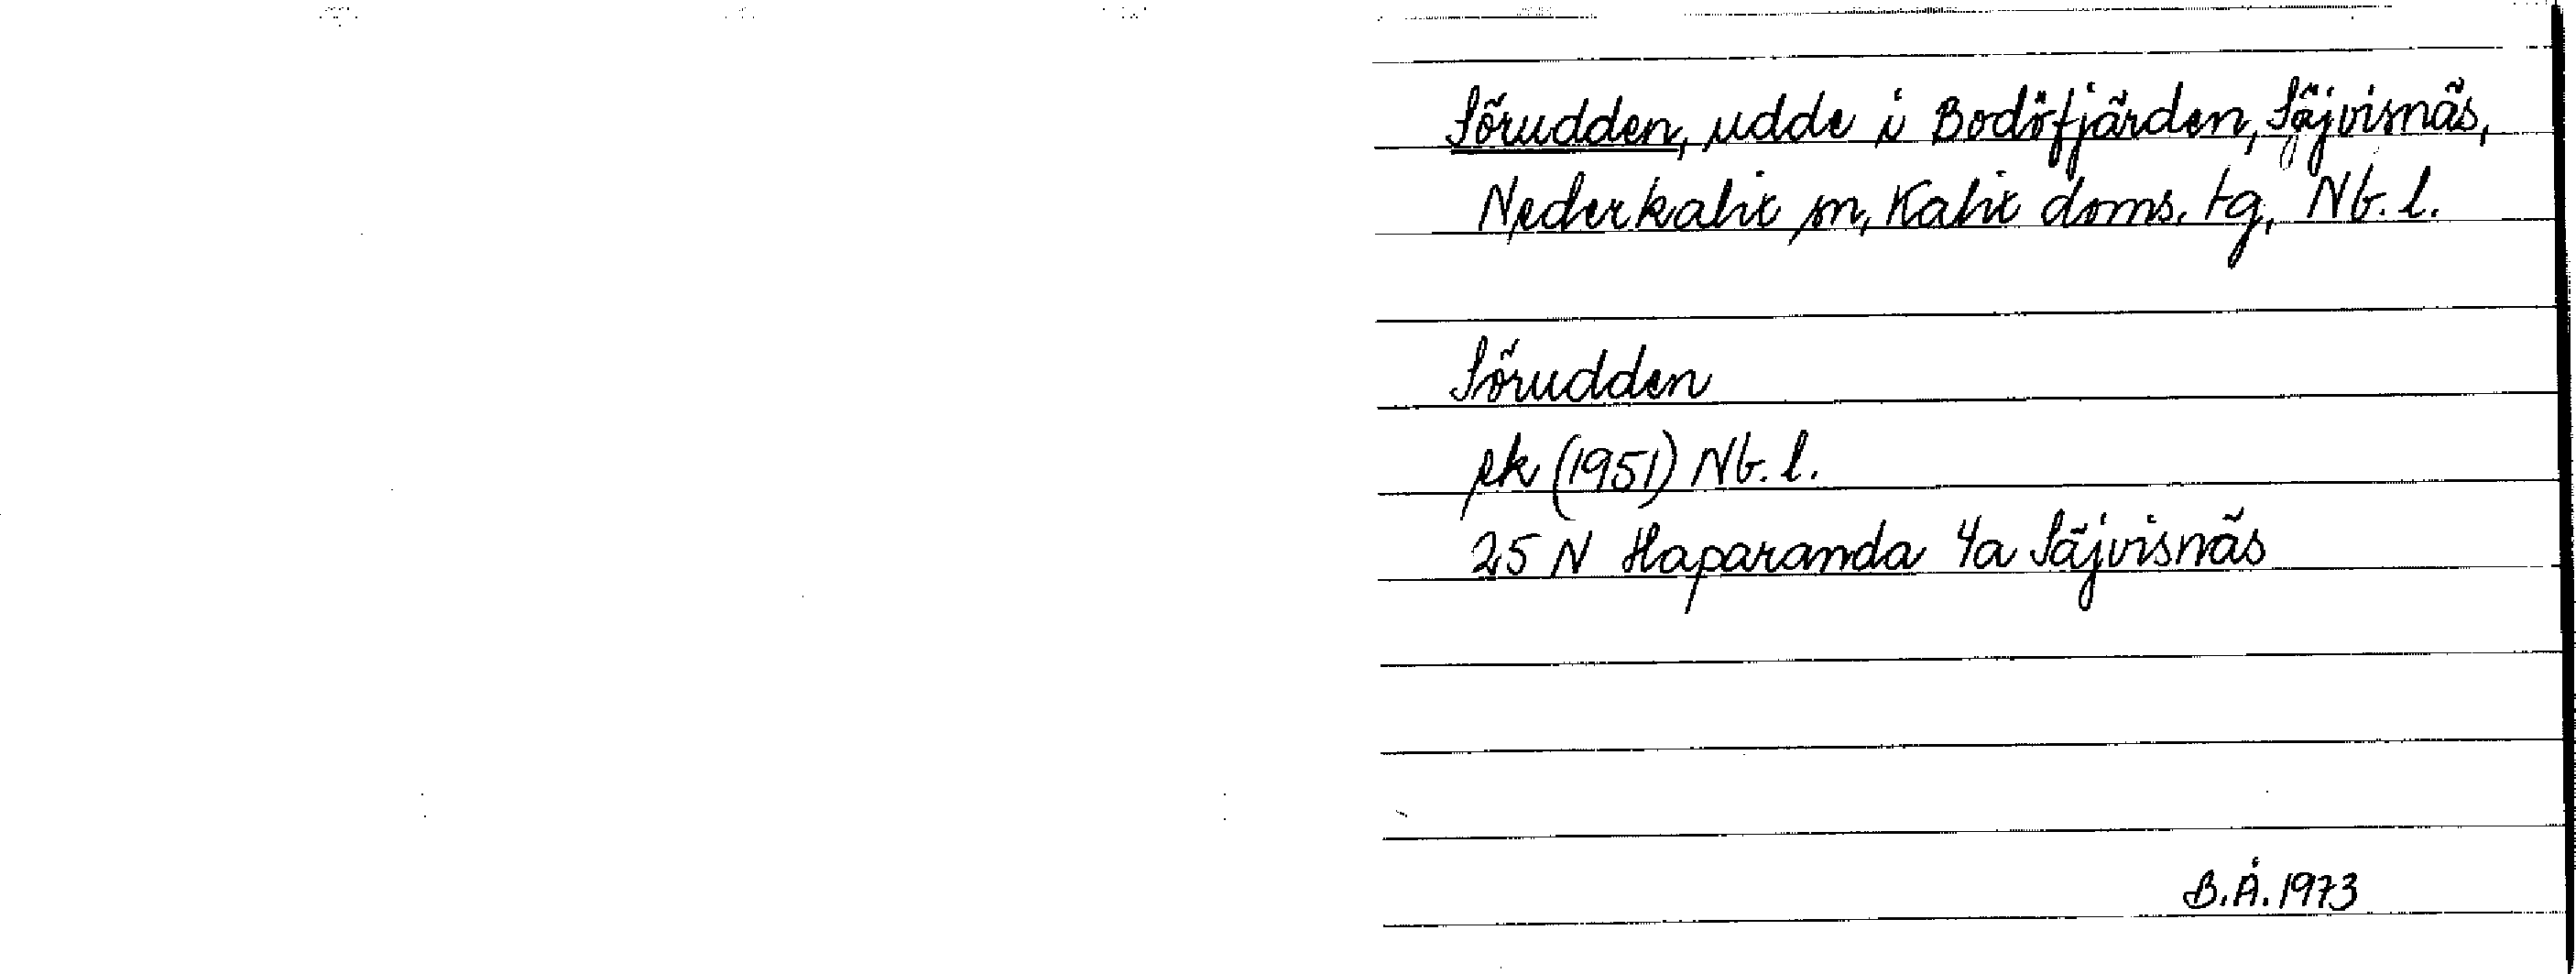 Sörudden, udde i Bodöfjärden, Säjvisnäs,
Nederkalix sn, Kalix doms. tg, Nb. l.
Sörudden
ek (1951) Nb. l.
25 N Haparanda 4a Säjvisnäs
B.Å. 1973